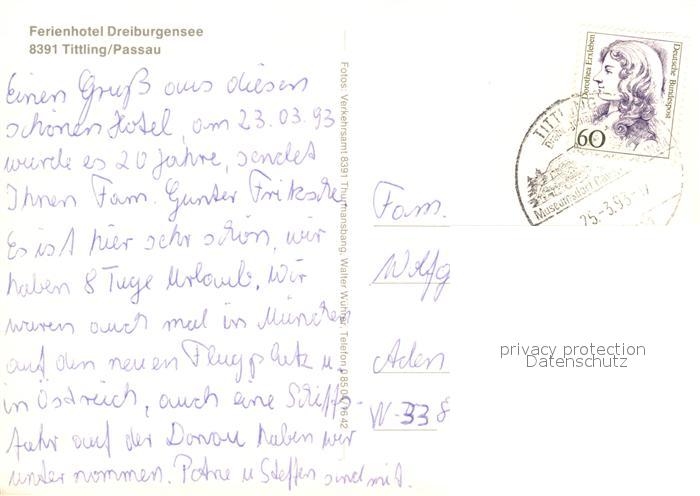 Ferienhotel Dreiburgensee
8391 Tittling/Passau
Einen Gruß aus diesen
schönen Hotel, am 23.03.93
wurde es 20 Jahre, sendet
Ihnen Fam. Gunter Fritzsche
Es ist hier sehr schön, wir
haben 8 Tage Urlaub. Wir
waren auch mal in München
auf den neuen Flugplatz u.
in Östreich, auch eine Schiffs-
fahr auf der Donau haben wir
unter nommen. Petra u Steffen sind mit.
Fotos: Verkehrsamt 8391 Thurmansbang, Walter Wührer, Telefon
Fam.
Wolfg
Aden
W-33 8
Dorothea Erxleben
Deutsche Bundespost
60
TITTLING
Museumsdorf
25.-3.93
privacy protection
Datenschutz